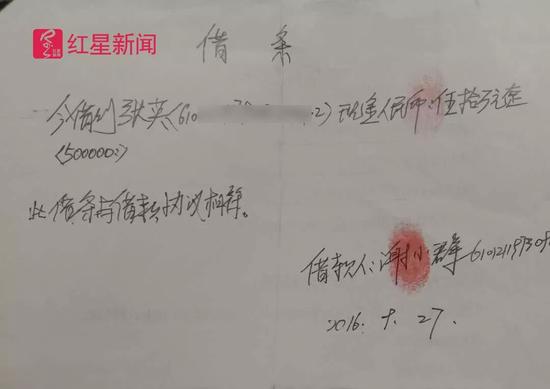 红星新闻
借条
今借到张英(610 2)现金人民币:伍拾万元整
(500000:)
此借条与借款协议相符。
借款人:谢小群610121197309
2016. 9. 27.